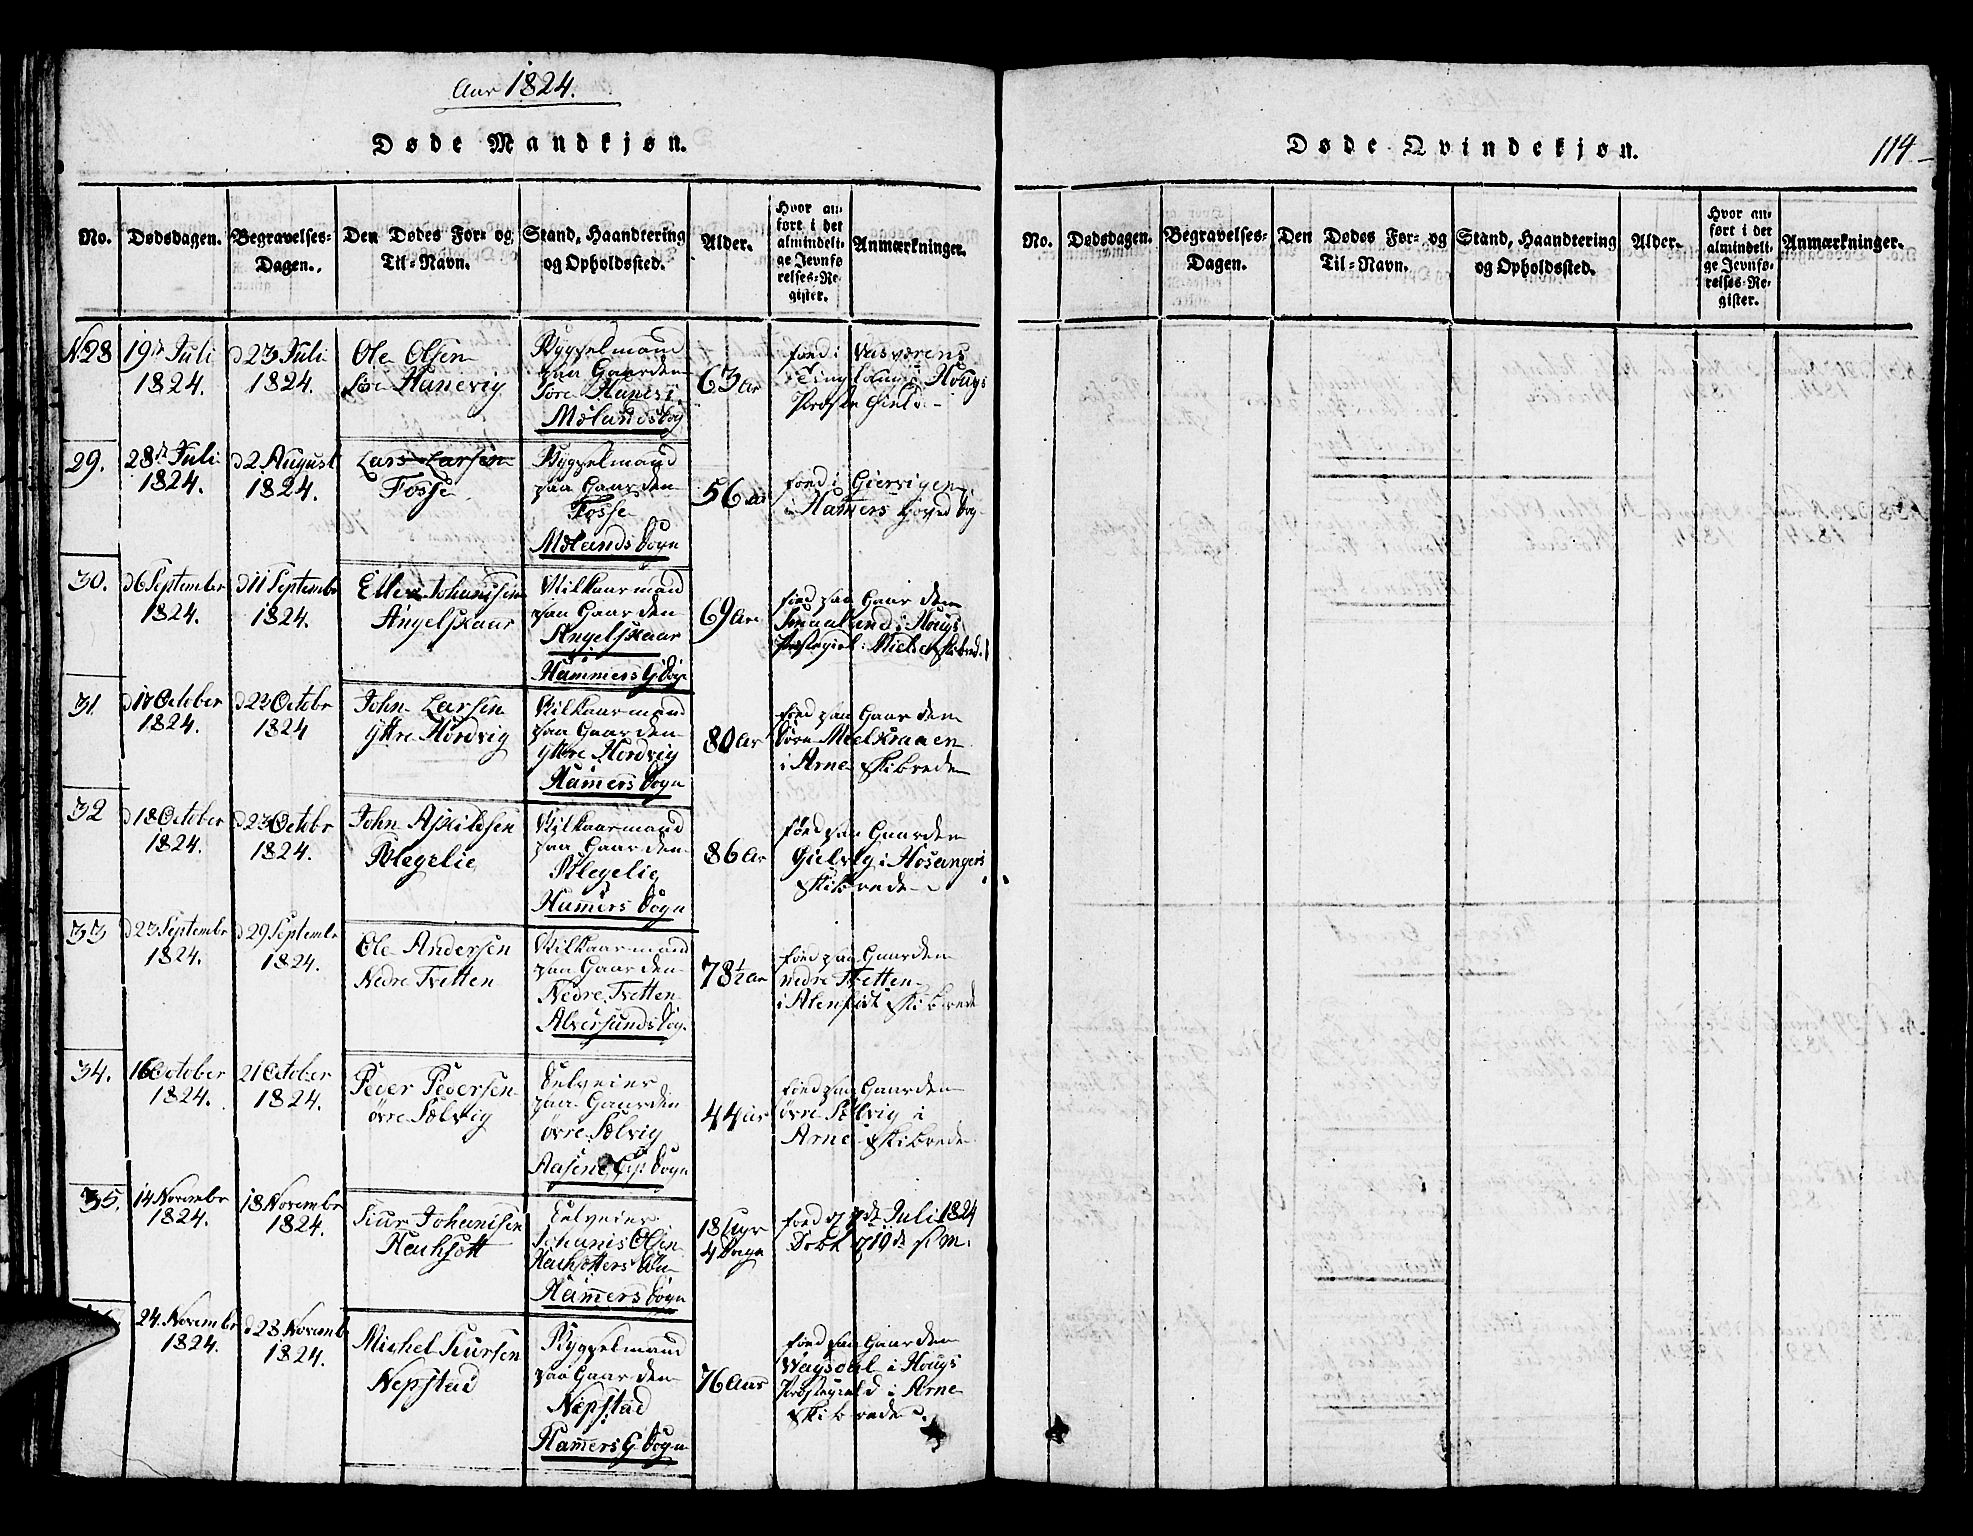 Aar 1824.
Døde Mandkjøn.
No.
Dødsdagen.
Begravelses-
Dagen.
Den Dødes For- og
Til-Navn.
Stand, Haandtering
og Opholdssted.
Alder.
Hvor an-
ført i det
almindeli-
ge Jevnfø-
relses-Re-
gister.
Anmærkninger.
N. 28
19de Juli
1824.
d 23 Juli
1824.
Ole Olsen
Søre Hanevig
Bygselmand
paa Gaarden
Søre Hanevi.
Mælandsog
63 Ar
født i
29.
28de Juli
1824.
d 2 August
1824.
Lars Larsen
Fosse
Bygselmand
paa Gaarden
Fosse
Mælands Sogn
56 Ar
født i Giervigen
i Hamers hoved Sog
30.
d 6 September
1824.
d 11 Septembr
1824.
Johanisen
Angelskaar
Vilkaarmand
paa Gaarden
Angelskaar
Hammers G Sog
69 Ar
fød paa Gaarden
i Hougs
31.
d 17 October
1824.
d 22 Octobr
1824
John Larsen
Yttre Hordvig
Vilkaarmand
paa Gaarden
Yttre Hordvig
Hamers Sogn
80 Ar
fød paa Gaarden
Søre Mielkraaen
i Arne Skibrede
32
d 18 October
1824.
d 23 Octobr
1824.
John Askildsen
Blegelie
Vilkaarmand
paa Gaarden
Blegelig
Hamers Sogn
86 Ar
fød paa Gaarden
i Hosangers
Skibrede
33
d 23 Septembr
1824.
d 29 Septembr
1824.
Ole Andersen
Nedre Tvetten
Vilkaarmand
paa Gaarden
Nedre Tvetten
Alversunds Sog.
78½ Ar
fød paa Gaarden
nedre Tvetten
i Alenfidt Skibrede
34.
16 October
1824.
21 October
1824.
Peder Pedersen
øvre Sælvig
Selveier
paa Gaarden
øvre Sælvig
Aasene Sogn
44 Ar
fød paa Gaarden
øvre Sælvig i
Arne Skibrede
35.
14 Novembr
1824.
18 Novembr
1824.
Siur Johanisen
Haukaott
Selveier
Johanis Olsen
Hamers Sogn
18 Uger
4 Dage
fød d 7de Juli 1824
Døbt
24. Novembr
1824.
d 28 Novemb
1824.
Michel Siursen
Nepstad
Bygselmand
paa Gaarden
Nepstad
Hamers G. Sogn
76 Aar
fød paa Gaarden
Wagsdal i Hougs
Præstegield i Arne
Skibrede.
Døde Qvindekjøn.
114
No.
Dødsdagen.
Begravelses-
Dagen.
Den Dødes For- og
Til-Navn.
Stand, Haandtering
og Opholdssted.
Alder.
Hvor an-
ført i det
almindeli-
ge Jevnfø-
relses-Re-
gister.
Anmærkninger.